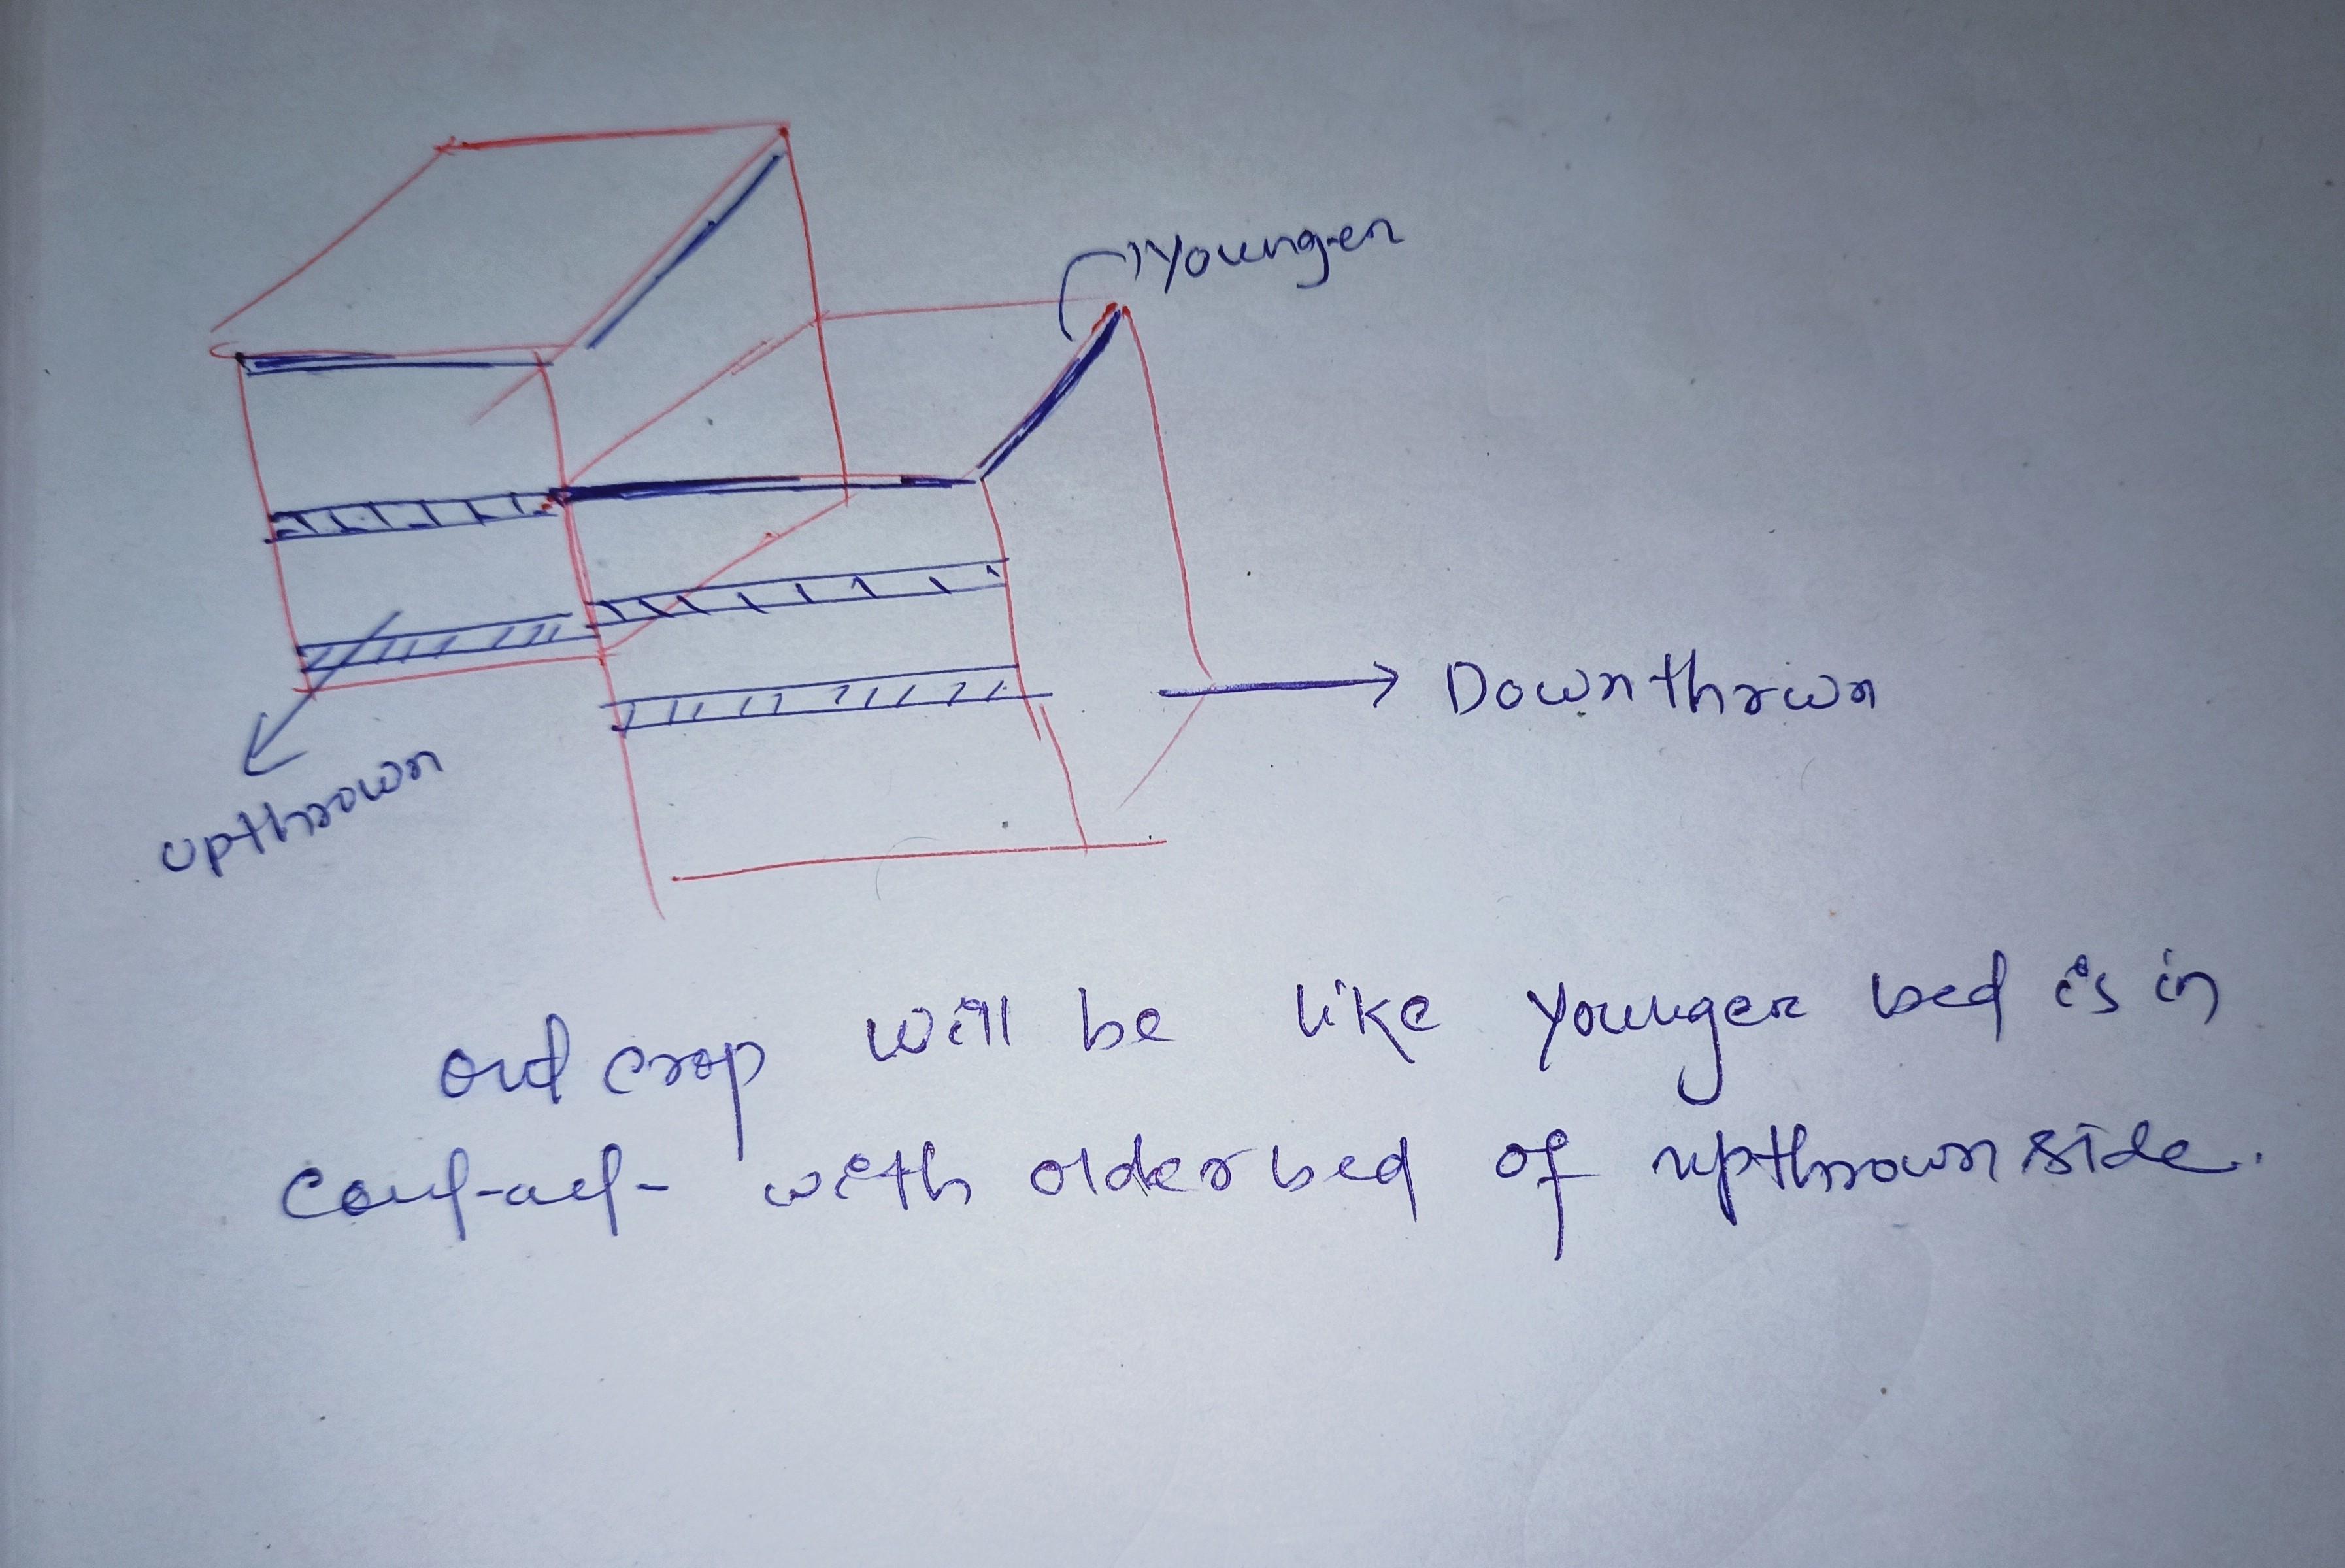 Younger
Downthrown
upthrown
outcrop will be like younger bed is in
contact with older bed of upthrown side.